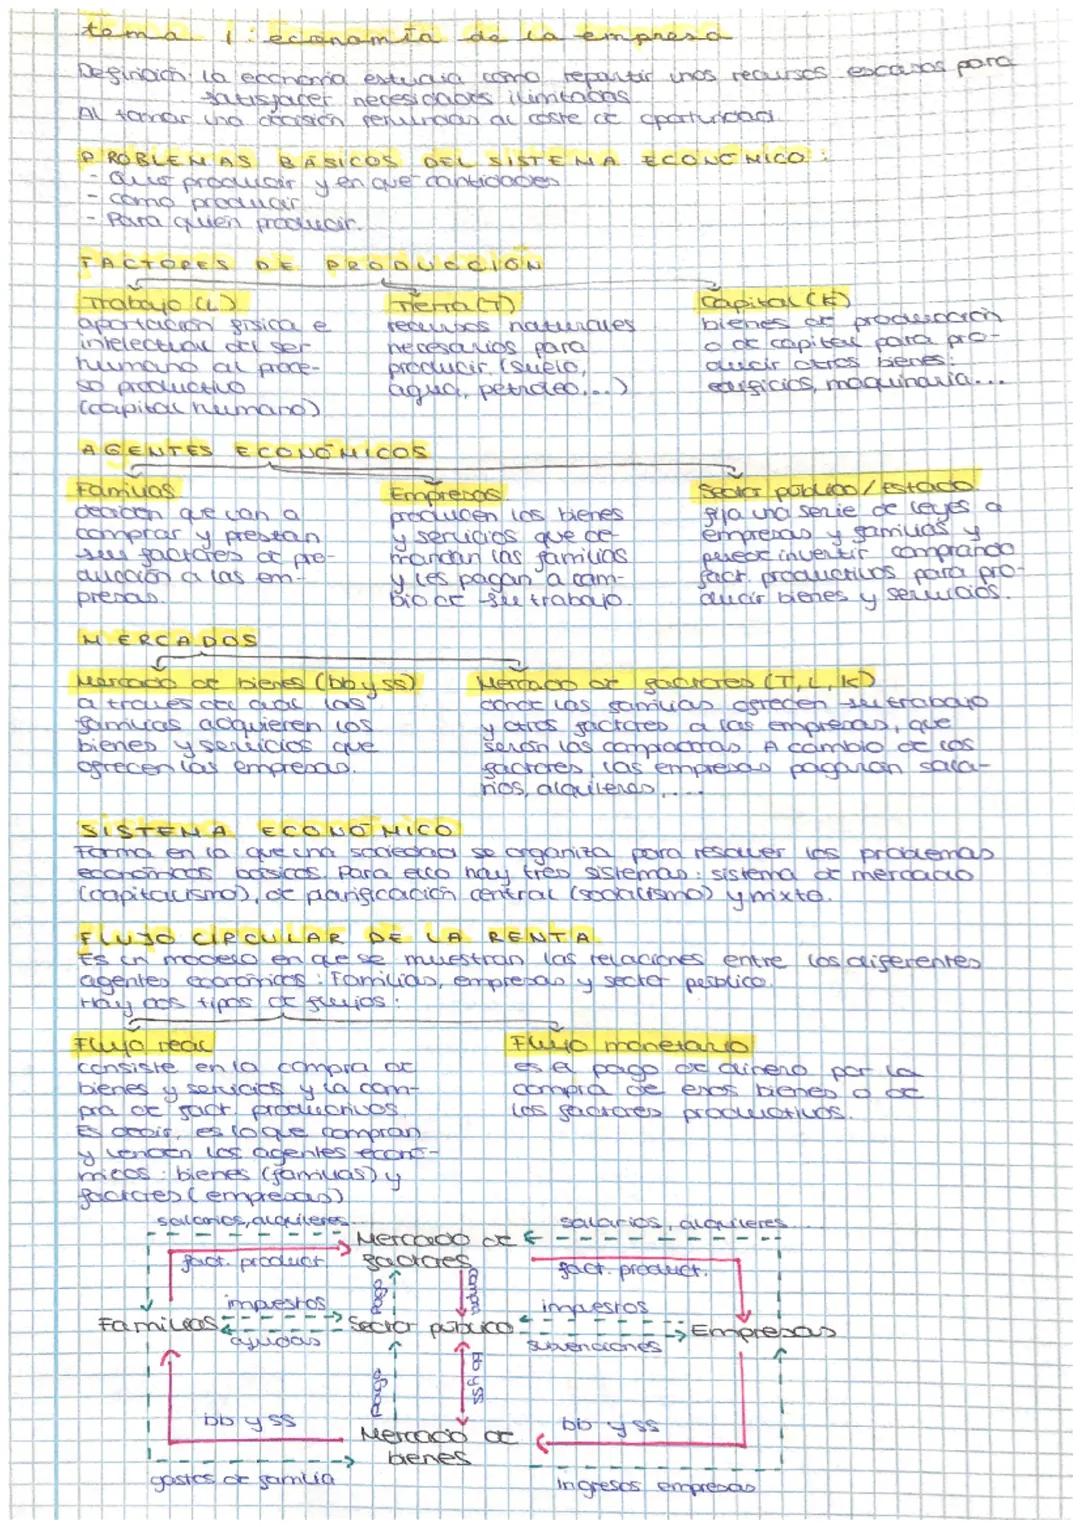 tema 1: economía de la empresa
Definición: la economía estudia cómo repartir unos recursos escasos para
satisfacer necesidades ilimitadas.
Al tomar una decisión renunciamos al coste de oportunidad.
PROBLEMAS BÁSICOS DEL SISTEMA ECONÓMICO:
- Qué producir y en qué cantidades
- cómo producir
- Para quién producir.
FACTORES DE PRODUCCIÓN
Trabajo (L) Tierra (T) Capital (K)
aportación física e recursos naturales bienes de producción
intelectual del ser necesarios para o de capital para pro-
humano al proce- producir (suelo, ducir otros bienes:
so productivo agua, petróleo...) edificios, maquinaria...
(capital humano)
AGENTES ECONÓMICOS
Familias Empresas Sector público/estado
deciden que van a producen los bienes fija una serie de leyes a
comprar y prestan y servicios que de- empresas y familias y
sus factores de pro- mandan las familias puede invertir comprando
ducción a las em- y les pagan a cam- fact. productivos para pro-
presas. bio de su trabajo. ducir bienes y servicios.
MERCADOS
Mercado de bienes (bb y ss) Mercado de factores (T, L, K)
a través del cual las donde las familias ofrecen su trabajo
familias adquieren los y otros factores a las empresas, que
bienes y servicios que serán las compradoras. A cambio de los
ofrecen las empresas. factores, las empresas pagarán sala-
rios, alquileres,....
SISTEMA ECONÓMICO
Forma en la que una sociedad se organiza para resolver los problemas
económicos básicos. Para ello hay tres sistemas: sistema de mercado
(capitalismo), de planificación central (socialismo) y mixto.
FLUJO CIRCULAR DE LA RENTA
Es un modelo en que se muestran las relaciones entre los diferentes
agentes económicos: Familias, empresas y sector público.
Hay dos tipos de flujos:
Flujo real Flujo monetario
consiste en la compra de es el pago de dinero por la
bienes y servicios y la com- compra de esos bienes o de
pra de fact. productivos. los factores productivos.
Es decir, es lo que compran
y venden los agentes econó-
micos: bienes (familias) y
factores (empresas)
salarios, alquileres... salarios, alquileres...
Mercado de
fact. product. factores fact. product.
pago compra
impuestos impuestos
Familias Sector público Empresas
ayudas subvenciones
pago bb y ss
bb y ss Mercado de bb y ss
bienes
gastos de familia ingresos empresas